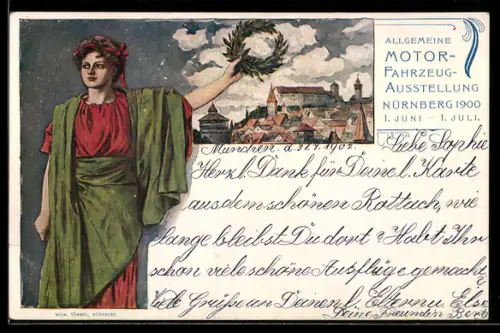 ALLGEMEINE
MOTOR-
FAHRZEUG-
AUSSTELLUNG
NÜRNBERG 1900
1. JUNI – 1. JULI.
München. d. 31.7.1902.
Liebe Sophie
Herzl. Dank für Deine l. Karte
aus dem schönen Rottach, wie
lange bleibst Du dort? Habt Ihr
schon viele schöne Ausflüge gemacht
Viele Grüße an Deinen l. Eltern u. Else
Deine Freundin
NÜRNBERG.